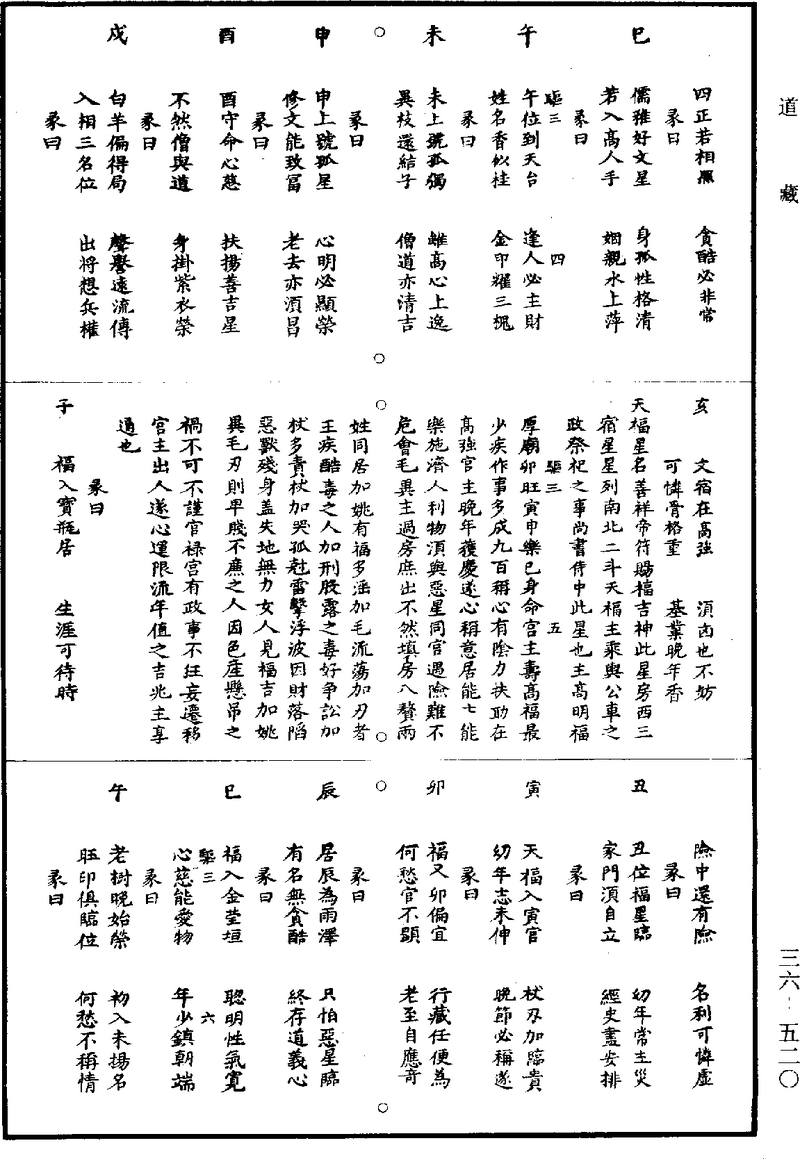 道藏
四正若相照　貪酷必非常
彖曰
巳　儒雅好文星　身孤性格清
若入高人手　姻親水上萍
彖曰
驅三　四
午　午位到天台　逢人必主財
姓名香似桂　金印耀三槐
彖曰
未　未上號孤獨　雖高心上逸
異枝還結子　僧道亦清吉
彖曰
申　申上號孤星　心明必顯榮
修文能致富　老去亦須昌
彖曰
酉　酉守命心慈　扶揚善吉星
不然僧與道　身掛紫衣榮
彖曰
戌　白羊偏得局　聲譽遠流傳
入相三名位　出將想兵權
彖曰
亥　文宿在高強　須凶也不妨
可憐骨格重　基業晚年香
天福星名善祥帝符賜福吉神此星房西三
宿星星列南北二斗天福主乘輿公車之
政祭祀之事尚書侍中此星也主高明福
驅三　五
厚廟卯旺寅申樂巳身命宮主壽高福最
少疾作事多成九百稱心有陰力扶助在
高強官主晚年獲慶遂心稱意居能七能
樂施濟人利物須與惡星同官遇險難不
危會毛異主過房庶出不然填房入贅兩
姓同居加姚有福多滛加毛流蕩加刃者
王疾酷毒之人加刑股露之毒好爭訟加
杖多責杖加哭孤尅雷擊浮波因財落陷
惡獸殘身盖失地無力女人見福吉加姚
異毛刃則早賤不廉之人因色產懸吊之
禍不可不謹官祿宮有政事不枉妄遷移
宮主出人遂心運限流年值之吉兆主享
通也
彖曰
子　福入寶瓶居　生涯可待時
險中還有險　名利可憐虛
彖曰
丑　丑位福星臨　幼年常主災
家門須自立　經史盡安排
彖曰
寅　天福入寅官　杖刃加臨貴
幼年志未伸　晚節必稱遂
彖曰
卯　福又卯偏宜　行藏任便為
何愁官不顯　老至自應奇
彖曰
辰　居辰為雨澤　只怕惡星臨
有名無貪酷　終存道義心
彖曰
巳　福入金莹垣　聰明性氣寬
驅三　六
心慈能愛物　年少鎮朝端
彖曰
午　老樹晚始榮　初入未揚名
旺印俱臨位　何愁不稱情
彖曰
三六－五二〇